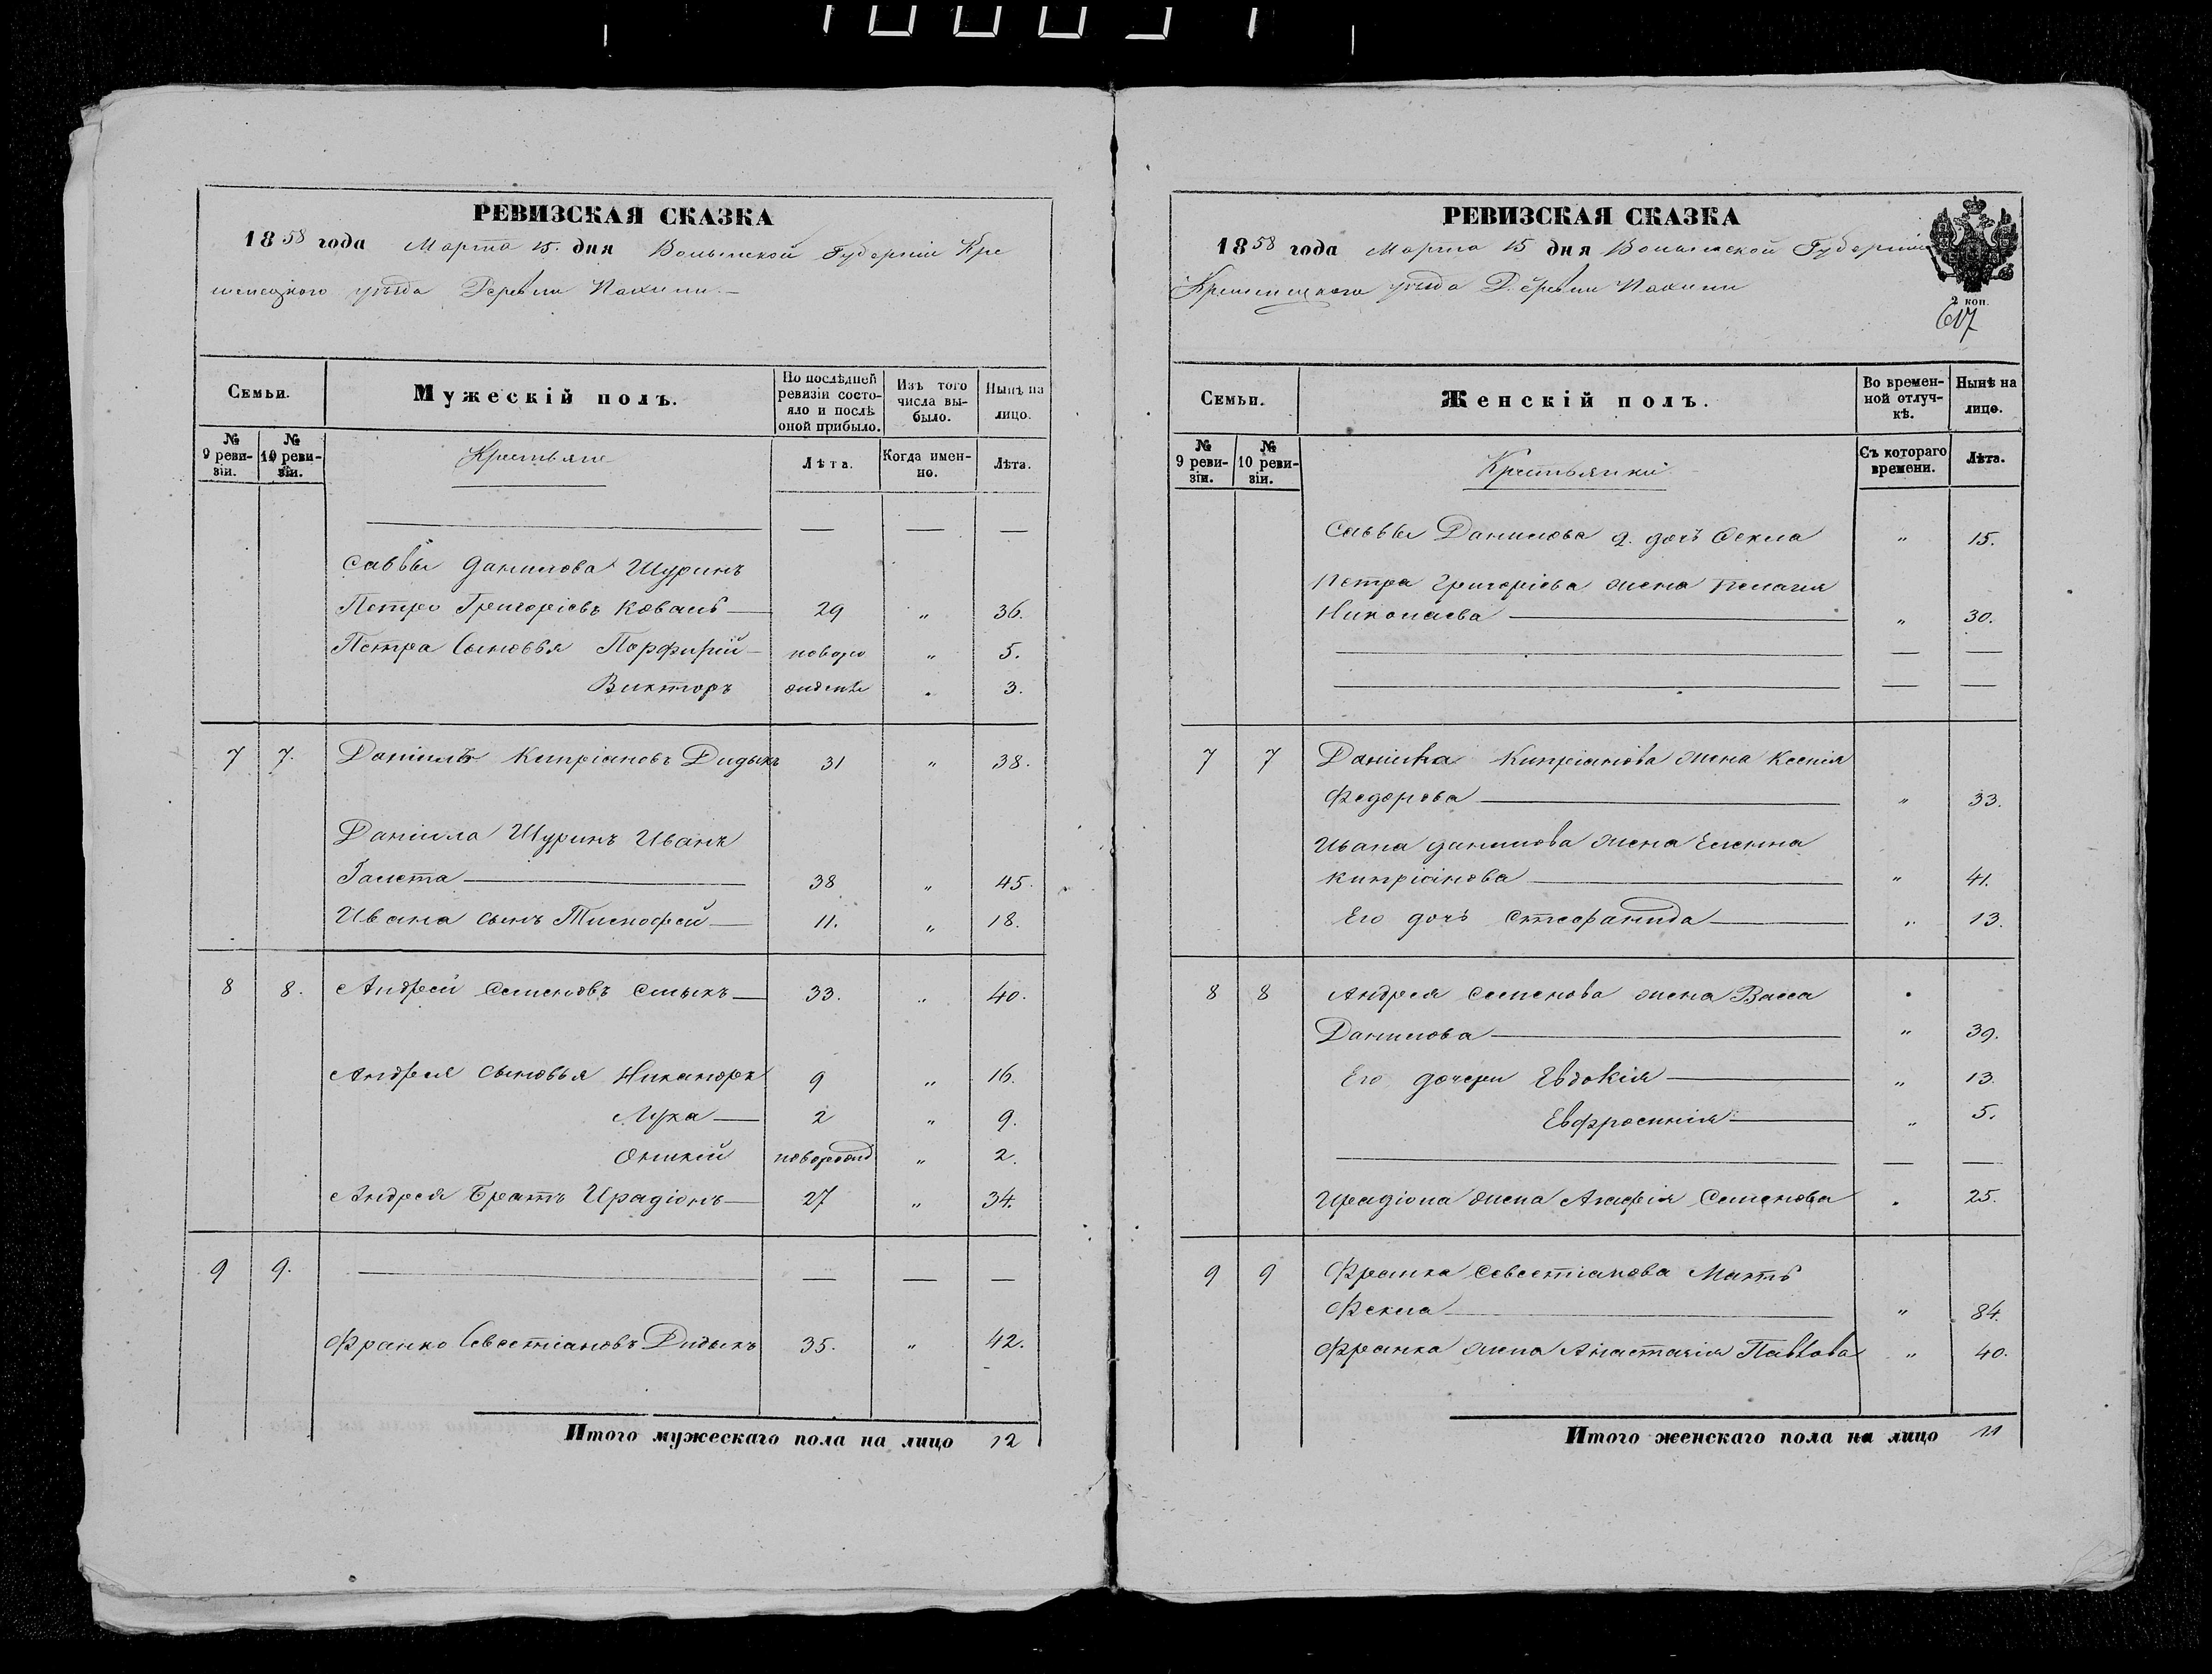 РЕВИЗСКАЯ СКАЗКА
1858 года Марта 15. дня Волынской Губерніи Кре
менецкого уѣзда Деревни
Семьи.
Мужескій полъ.
По послѣдней ревизіи состояло и послѣ оной прибыло.
Изъ того числа выбыло.
Нынѣ на лицо.
№ 9 ревизіи.
№ 10 ревизіи.
Крестьяне
Лѣта.
Когда именно.
Лѣта.
— — — —
Саввы Данилова Шуринъ
Петро Григоріевъ Коваль — 29 „ 36.
Петра Сыновья Порфирій — новоро „ 5.
Викторъ жденъ „ 3.
7 7. Даніилъ Кипріановъ Дидыкъ 31 „ 38.
Даніила Шуринъ Иванъ
Галета — 38 „ 45.
Ивана сынъ Тимофей — 11. „ 18.
8 8. Андрей Семеновъ Смыкъ — 33. „ 40.
Андрея сыновья Никаноръ 9 „ 16.
Лука — 2 „ 9.
новорожд „ 2.
Андрея Братъ Ирадіонъ — 27 „ 34.
9 9. — — — —
Франко Севестіановъ Дидыкъ 35. „ 42.
Итого мужескаго пола на лицо 12
РЕВИЗСКАЯ СКАЗКА
1858 года Марта 15 дня Волынской Губерніи
Кременецкого уѣзда Деревни
2 коп.
617
Семьи.
Женскій полъ.
Во временной отлучкѣ.
Нынѣ на лицо.
№ 9 ревизіи.
№ 10 ревизіи.
Крестьянки
Съ котораго времени.
Лѣта.
Саввы Данилова 2. дочь Фекла „ 15.
Петра Григоріева жена Пелагія
Николаева — „ 30.
— — —
— — —
7 7 Даніила Кипріанова жена Ксенія
Федорова — „ 33.
Ивана Данилова жена Елена
Кипріанова — „ 41.
Его дочь Стефанида — „ 13.
8 8 Андрея Семенова жена Васса
Данилова — „ 39.
Его дочери Евдокія — „ 13.
Евфросинія — „ 5.
— — —
Ирадіона жена Агафія Семенова „ 25.
9 9 Франка Севестіанова Мать
Фекла — „ 84.
Франка жена Анастасія Павлова „ 40.
Итого женскаго пола на лицо 11